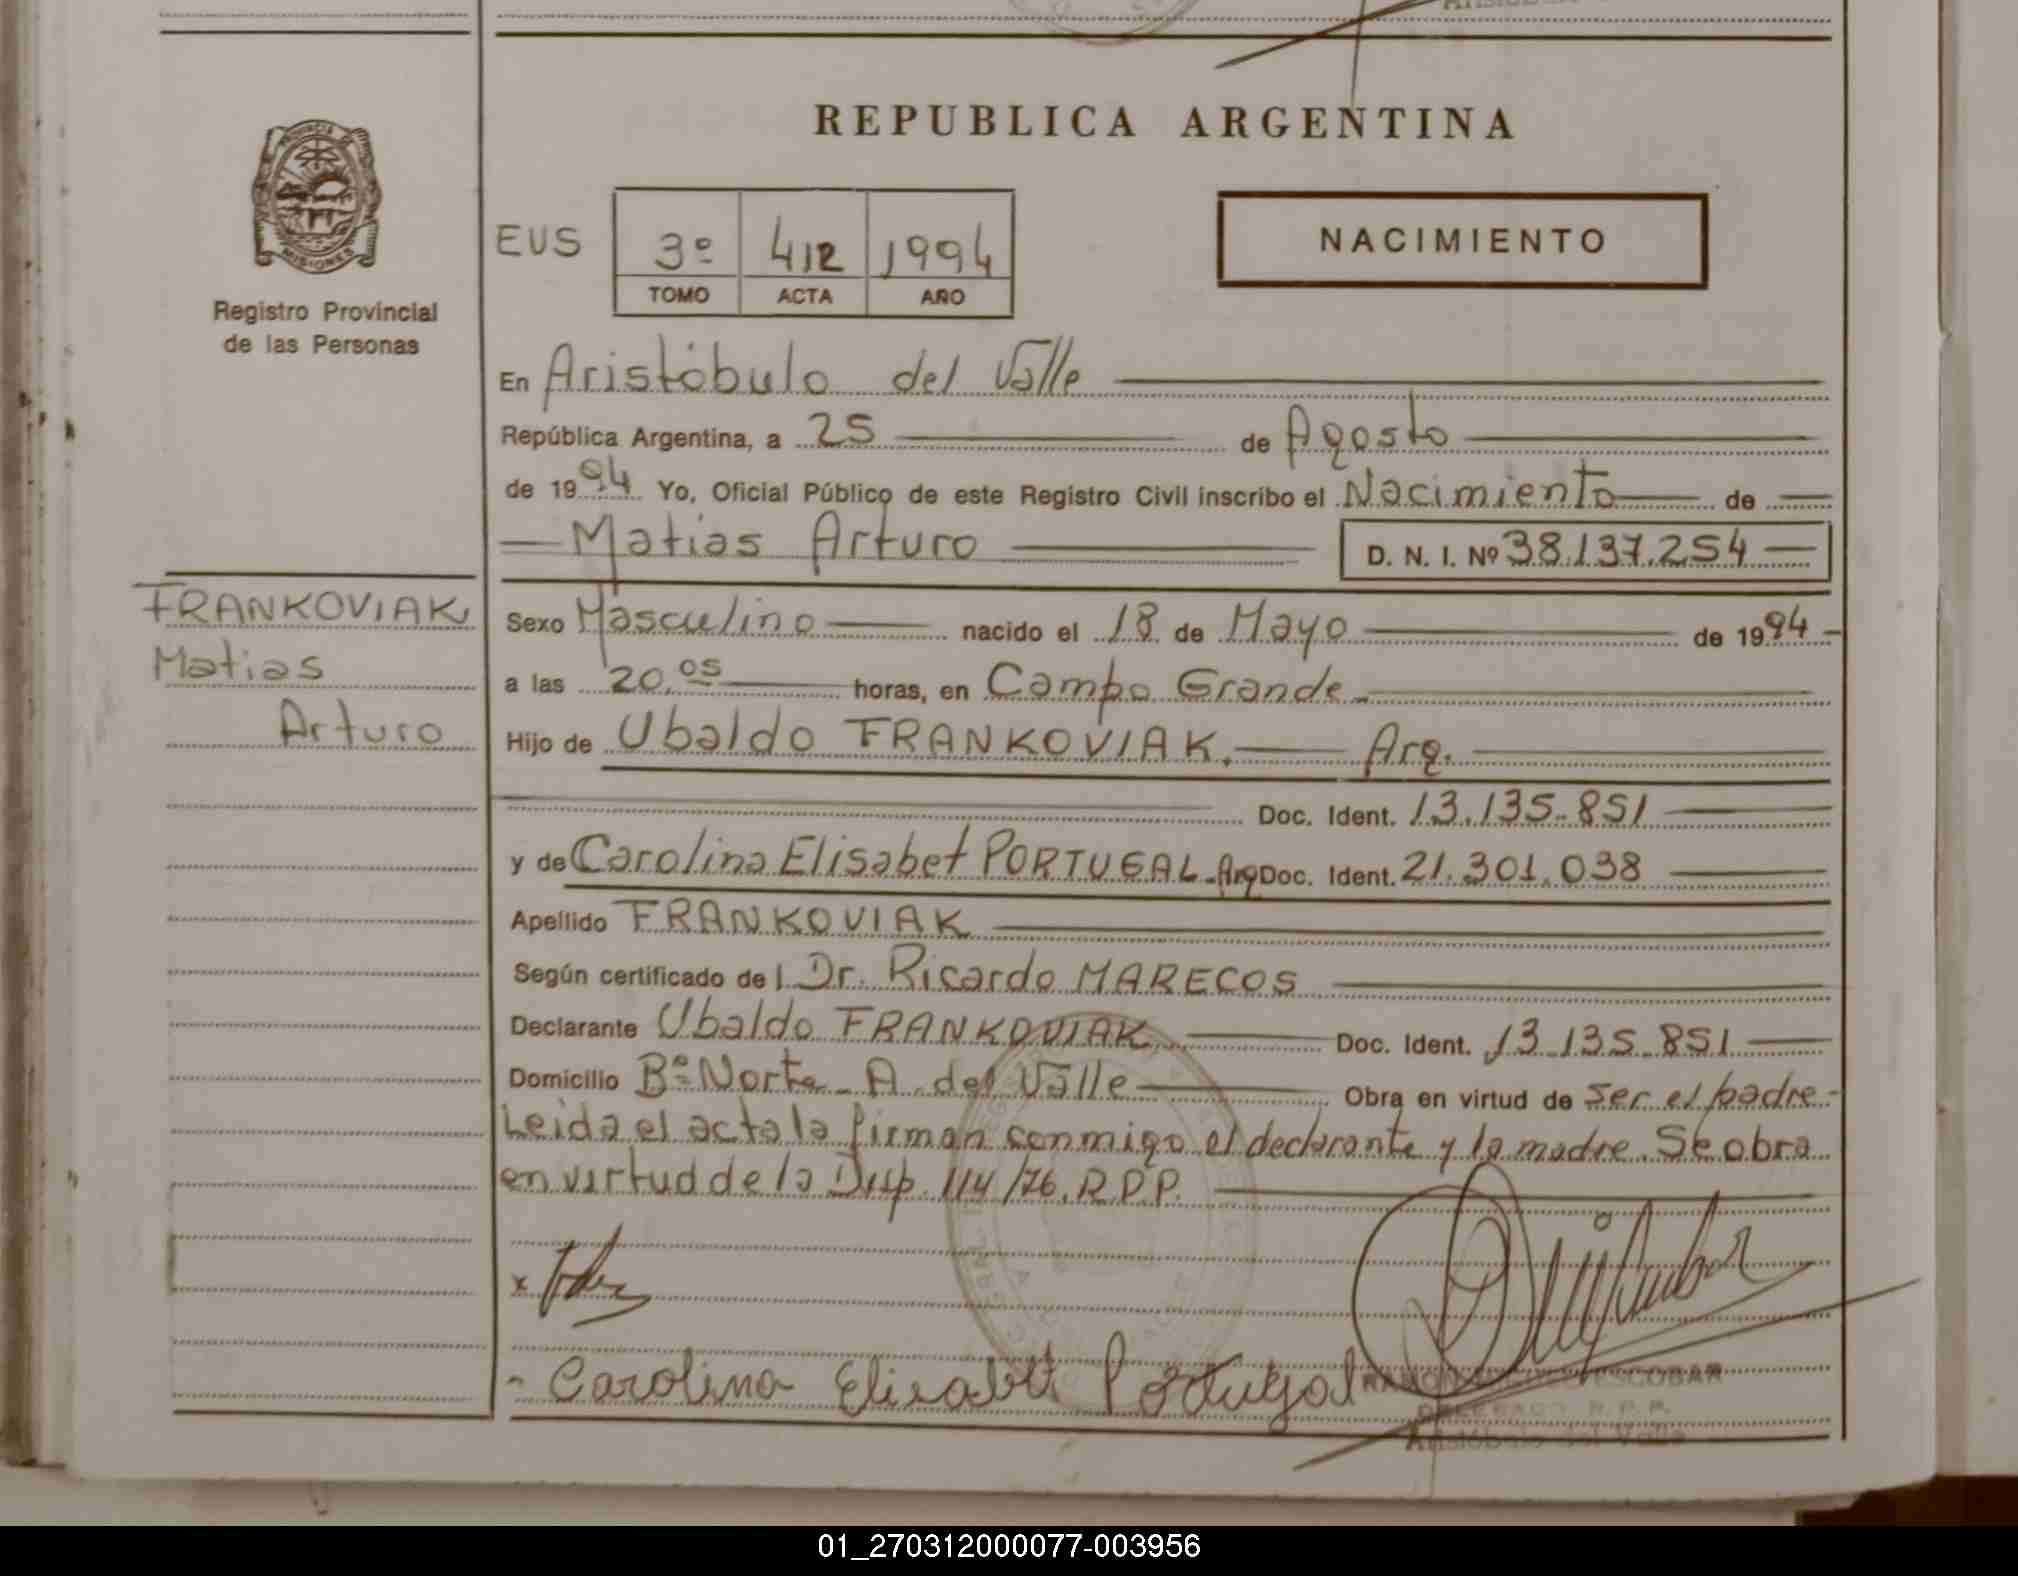 REPUBLICA ARGENTINA
PROVINCIA DE
MISIONES
Registro Provincial
de las Personas
EUS
3º 412 1994
TOMO ACTA AÑO
NACIMIENTO
En Aristóbulo del Valle
República Argentina, a 25 de Agosto
de 1994 Yo, Oficial Público de este Registro Civil inscribo el Nacimiento de
Matias Arturo D. N. I. Nº 38.137.254
FRANKOVIAK
Matias
Arturo
Sexo Masculino nacido el 18 de Mayo de 1994
a las 20.05 horas, en Campo Grande
Hijo de Ubaldo FRANKOVIAK. Arg.
Doc. Ident. 13.135.851
y de Carolina Elisabet PORTUGAL. Arg Doc. Ident. 21.301.038
Apellido FRANKOVIAK
Según certificado de l Dr. Ricardo MARECOS
Declarante Ubaldo FRANKOVIAK Doc. Ident. 13.135.851
Domicilio Bº Norte A. del Valle Obra en virtud de ser el padre
Leida el acta la firman conmigo el declarante y la madre. Se obra
en virtud de la Disp. 114/76. R.P.P.
x
Carolina Elisabet Portugal
ESCOBAR
DELEGADO R. P. P.
Aristóbulo del Valle
01_270312000077-003956